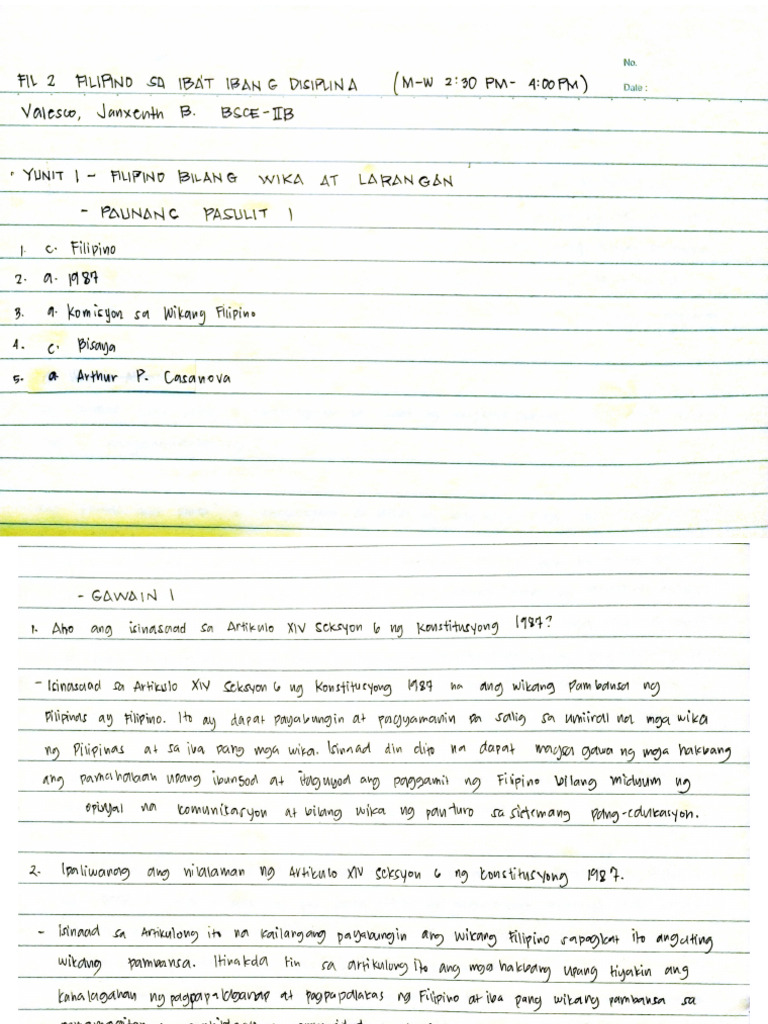 No.
FIL 2 FILIPINO SA IBA'T IBANG DISIPLINA (M-W 2:30 PM - 4:00PM)
Date :
Valesco, Janxenth B. BSCE-IIB
• YUNIT 1 - FILIPINO BILANG WIKA AT LARANGAN
- PAUNANG PASULIT 1
1. c. Filipino
2. a. 1987
3. a. Komisyon sa Wikang Filipino
4. c. Bisaya
5. a Arthur P. Casanova
- GAWAIN 1
1. Ano ang isinasaad sa Artikulo XIV Seksyon 6 ng Konstitusyong 1987?
- Isinasaad sa Artikulo XIV Seksyon 6 ng Konstitusyong 1987 na ang wikang Pambansa ng
Pilipinas ay Filipino. Ito ay dapat payabungin at pagyamanin pa salig sa umiiral na mga wika
ng Pilipinas at sa iba pang mga wika. Isinaad din dito na dapat magsa gawa ng mga hakbang
ang pamahalaan upang ibunsod at itaguyod ang paggamit ng Filipino bilang midyum ng
opisyal na komunikasyon at bilang wika ng panturo sa sistemang pang-edukasyon.
2. Ipaliwanag ang nilalaman ng Artikulo XIV Seksyon 6 ng Konstitusyong 1987.
- Isinaad sa Artikulong ito na kailangang payabungin ang Wikang Filipino sapagkat ito ang ating
wikang pambansa. Itinakda rin sa artikulong ito ang mga hakbang upang tiyakin ang
kahalagahan ng pagpapalaganap at pagpapalakas ng Filipino at iba pang wikang pambansa sa